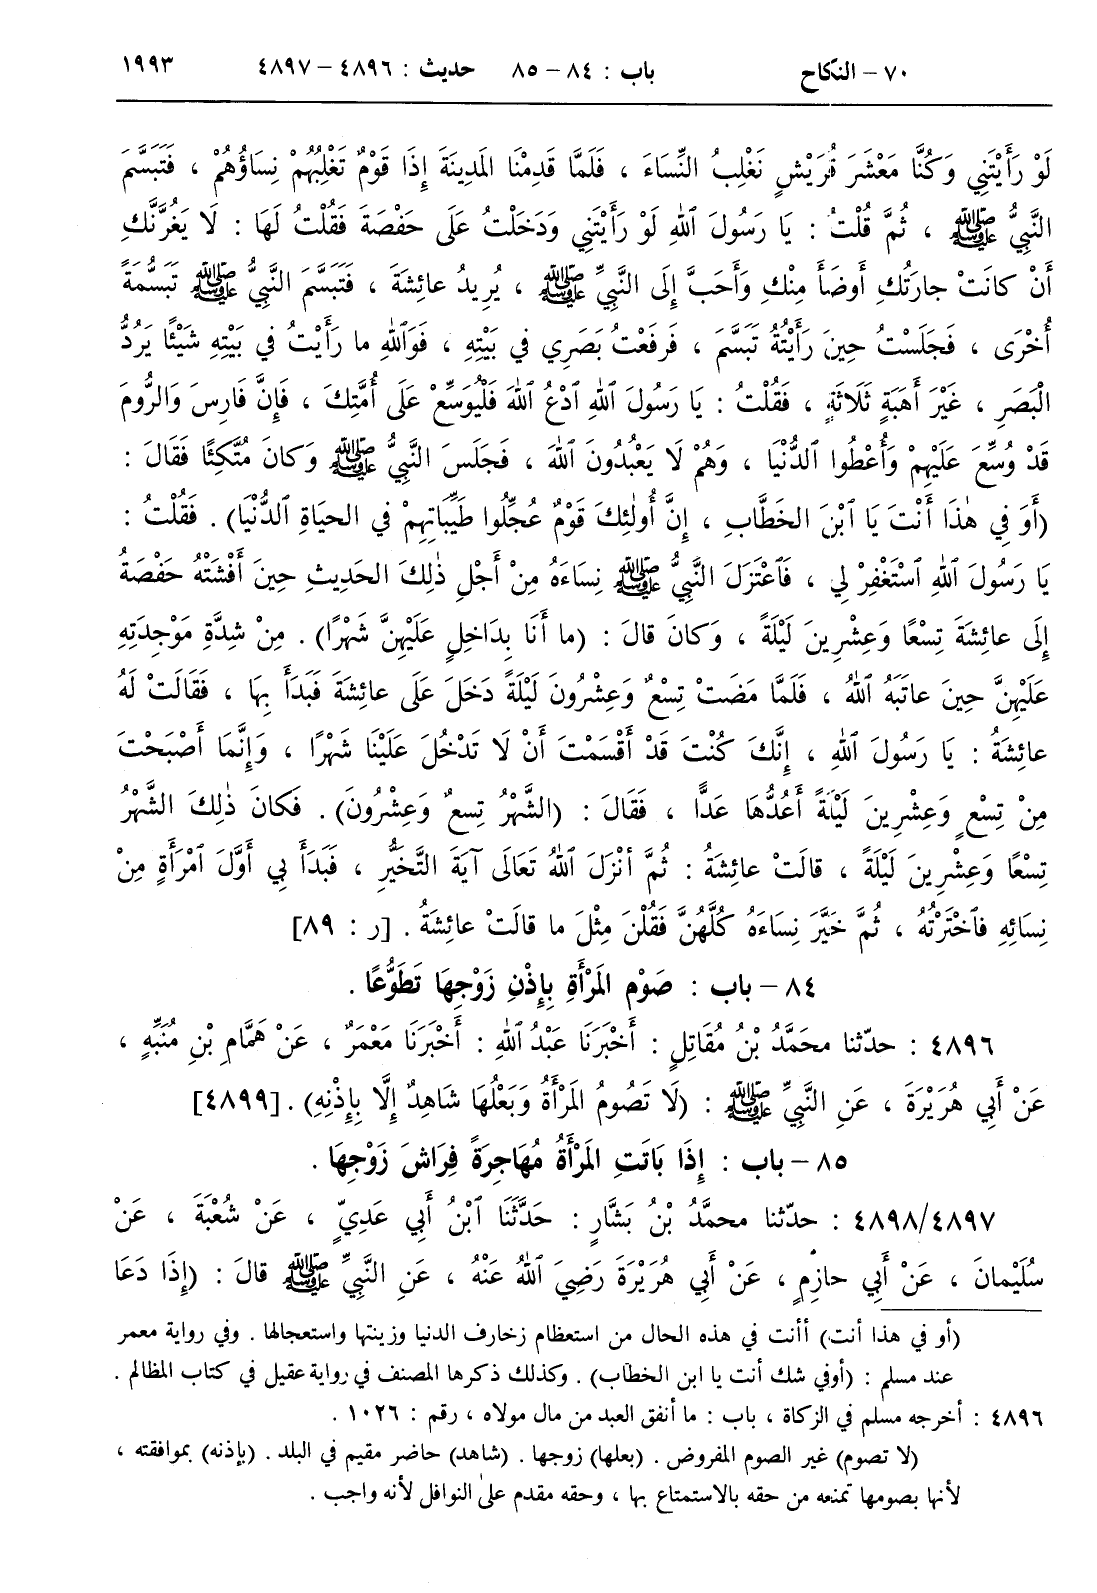 ٧٠ – النكاح باب : ٨٤ – ٨٥ حديث : ٤٨٩٦ – ٤٨٩٧ ١٩٩٣
لَوْ رَأَيْتَنِي وَكُنَّا مَعْشَرَ قُرَيْشٍ نَغْلِبُ النِّسَاءَ ، فَلَمَّا قَدِمْنَا المَدِينَةَ إِذَا قَوْمٌ تَغْلِبُهُمْ نِسَاؤُهُمْ ، فَتَبَسَّمَ
النَّبِيُّ ﷺ ، ثُمَّ قُلْتُ : يَا رَسُولَ اللهِ لَوْ رَأَيْتَنِي وَدَخَلْتُ عَلَى حَفْصَةَ فَقُلْتُ لَهَا : لَا يَغُرَّنَّكِ
أَنْ كانَتْ جارَتُكِ أَوْضَأَ مِنْكِ وَأَحَبَّ إِلَى النَّبِيِّ ﷺ ، يُرِيدُ عائِشَةَ ، فَتَبَسَّمَ النَّبِيُّ ﷺ تَبَسُّمَةً
أُخْرَى ، فَجَلَسْتُ حِينَ رَأَيْتُهُ تَبَسَّمَ ، فَرَفَعْتُ بَصَرِي في بَيْتِهِ ، فَوَٱللهِ ما رَأَيْتُ في بَيْتِهِ شَيْئًا يَرُدُّ
الْبَصَرَ ، غَيْرَ أَهَبَةٍ ثَلَاثَةٍ ، فَقُلْتُ : يَا رَسُولَ اللهِ ٱدْعُ ٱللهَ فَلْيُوَسِّعْ عَلَى أُمَّتِكَ ، فَإِنَّ فَارِسَ وَالرُّومَ
قَدْ وُسِّعَ عَلَيْهِمْ وَأُعْطُوا ٱلدُّنْيَا ، وَهُمْ لَا يَعْبُدُونَ ٱللهَ ، فَجَلَسَ النَّبِيُّ ﷺ وَكانَ مُتَّكِئًا فَقَالَ :
(أَوَ في هٰذَا أَنْتَ يَا ٱبْنَ الخَطَّابِ ، إِنَّ أُولٰئِكَ قَوْمٌ عُجِّلُوا طَيِّبَاتِهِمْ في الحَيَاةِ ٱلدُّنْيَا) . فَقُلْتُ :
يَا رَسُولَ اللهِ ٱسْتَغْفِرْ لِي ، فَٱعْتَزَلَ النَّبِيُّ ﷺ نِسَاءَهُ مِنْ أَجْلِ ذٰلِكَ الحَدِيثِ حِينَ أَفْشَتْهُ حَفْصَةُ
إِلَى عائِشَةَ تِسْعًا وَعِشْرِينَ لَيْلَةً ، وَكانَ قالَ : (ما أَنَا بِدَاخِلٍ عَلَيْهِنَّ شَهْرًا) . مِنْ شِدَّةِ مَوْجِدَتِهِ
عَلَيْهِنَّ حِينَ عاتَبَهُ ٱللهُ ، فَلَمَّا مَضَتْ تِسْعٌ وَعِشْرُونَ لَيْلَةً دَخَلَ عَلَى عائِشَةَ فَبَدَأَ بِهَا ، فَقَالَتْ لَهُ
عائِشَةُ : يَا رَسُولَ اللهِ ، إِنَّكَ كُنْتَ قَدْ أَقْسَمْتَ أَنْ لَا تَدْخُلَ عَلَيْنَا شَهْرًا ، وَإِنَّمَا أَصْبَحْتَ
مِنْ تِسْعٍ وَعِشْرِينَ لَيْلَةً أَعُدُّهَا عَدًّا ، فَقَالَ : (الشَّهْرُ تِسعٌ وَعِشْرُونَ) . فَكانَ ذٰلِكَ الشَّهْرُ
تِسْعًا وَعِشْرِينَ لَيْلَةً ، قالَتْ عائِشَةُ : ثُمَّ أَنْزَلَ اللهُ تَعَالَى آيَةَ التَّخَيُّرِ ، فَبَدَأَ بِي أَوَّلَ ٱمْرَأَةٍ مِنْ
نِسَائِهِ فَٱخْتَرْتُهُ ، ثُمَّ خَيَّرَ نِسَاءَهُ كُلَّهُنَّ فَقُلْنَ مِثْلَ ما قالَتْ عائِشَةُ . [ر : ٨٩]
٨٤ – باب : صَوْمِ المَرْأَةِ بِإِذْنِ زَوْجِهَا تَطَوُّعًا .
٤٨٩٦ : حدّثنا محمَّدُ بْنُ مُقَاتِلٍ : أَخْبَرَنَا عَبْدُ اللهِ : أَخْبَرَنَا مَعْمَرٌ ، عَنْ هَمَّامِ بْنِ مُنَبِّهٍ ،
عَنْ أَبِي هُرَيْرَةَ ، عَنِ النَّبِيِّ ﷺ : (لَا تَصُومُ المَرْأَةُ وَبَعْلُهَا شَاهِدٌ إِلَّا بِإِذْنِهِ) . [٤٨٩٩]
٨٥ – باب : إِذَا بَاتَتِ المَرْأَةُ مُهَاجِرَةً فِرَاشَ زَوْجِهَا .
٤٨٩٨/٤٨٩٧ : حدّثنا محمَّدُ بْنُ بَشَّارٍ : حَدَّثَنَا ٱبْنُ أَبِي عَدِيٍّ ، عَنْ شُعْبَةَ ، عَنْ
سُلَيْمانَ ، عَنْ أَبِي حازِمٍ ، عَنْ أَبِي هُرَيْرَةَ رَضِيَ ٱللهُ عَنْهُ ، عَنِ النَّبِيِّ ﷺ قالَ : (إِذَا دَعَا
(أو في هذا أنت) أأنت في هذه الحال من استعظام زخارف الدنيا وزينتها واستعجالها . وفي رواية معمر
عند مسلم : (أوفي شك أنت يا ابن الخطاب) . وكذلك ذكرها المصنف في رواية عقيل في كتاب المظالم .
٤٨٩٦ : أخرجه مسلم في الزكاة ، باب : ما أنفق العبد من مال مولاه ، رقم : ١٠٢٦ .
(لا تصوم) غير الصوم المفروض . (بعلها) زوجها . (شاهد) حاضر مقيم في البلد . (بإذنه) بموافقته ،
لأنها بصومها تمنعه من حقه بالاستمتاع بها ، وحقه مقدم على النوافل لأنه واجب .